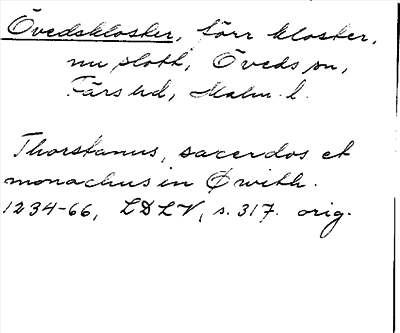 Övedskloster, förr kloster,
nu slott, Öveds sn,
Färs hd, Malm. l.
Thorstanus, sacerdos et
monachus in Øwith.
1234-66, LDLV, s. 317. orig.